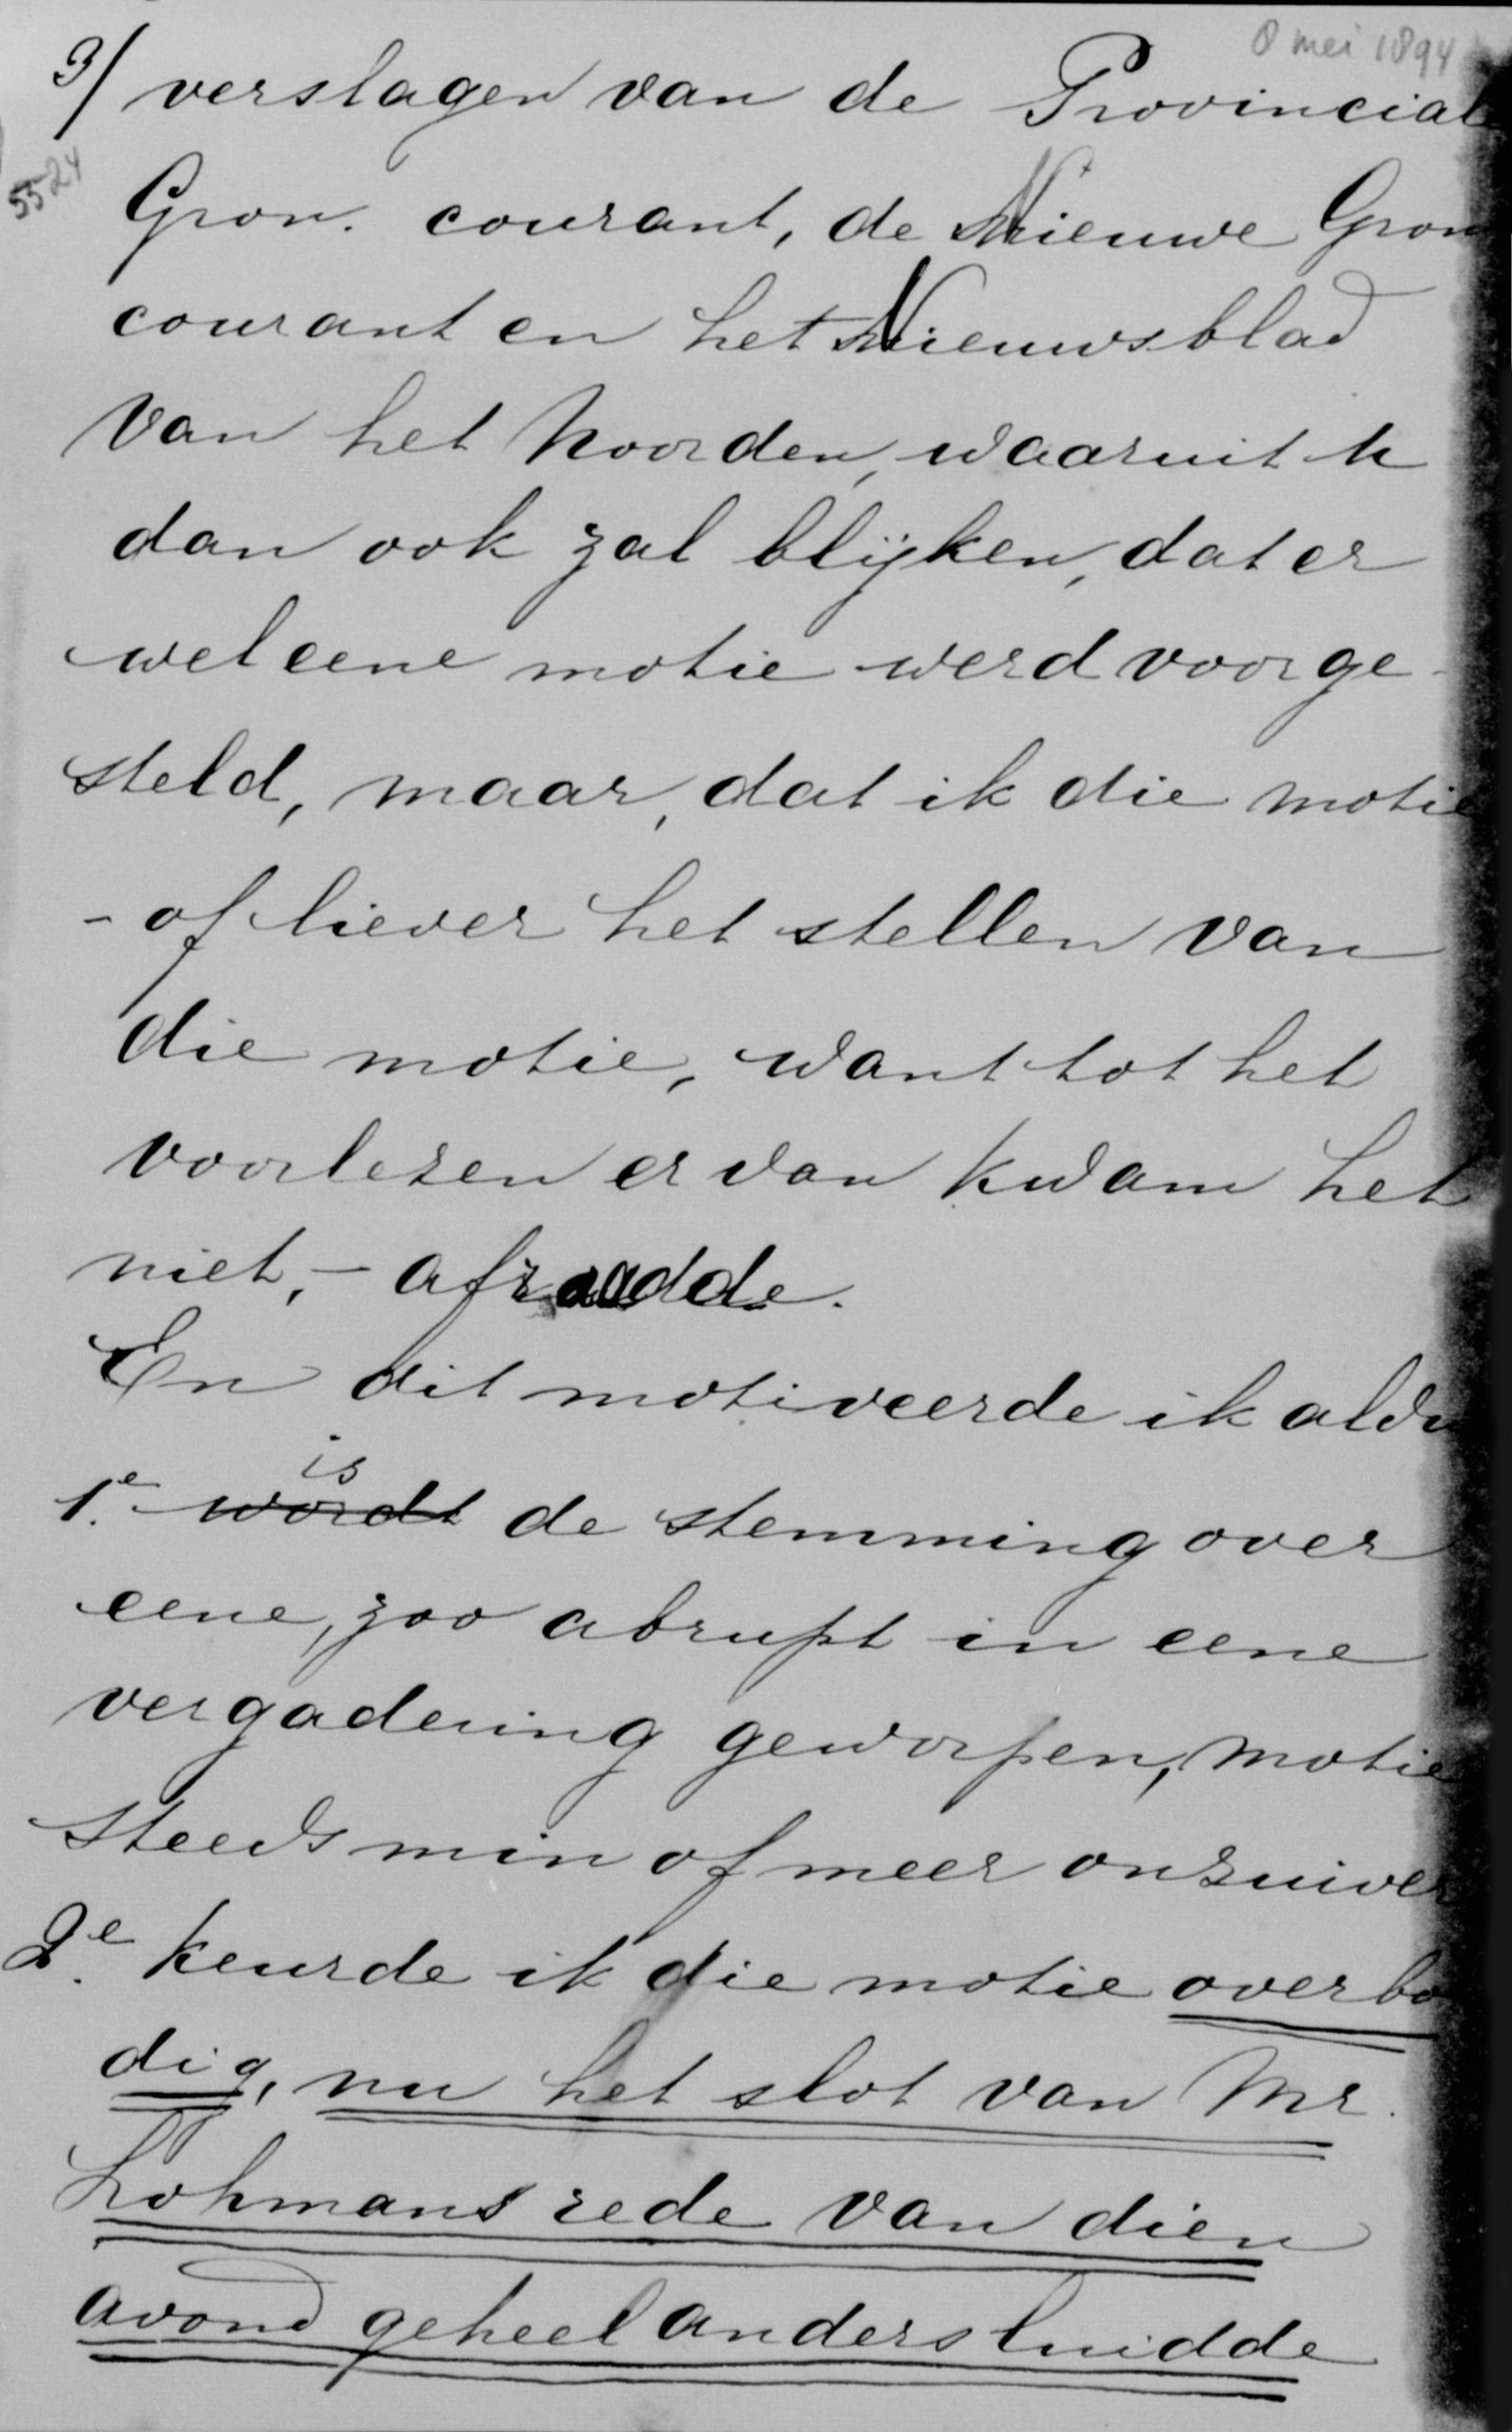 8 mei 1894
3/ verslagen van de Provinciale
5524
Gron. courant, de Nieuwe Gron
courant en het Nieuwsblad
van het Noorden, waaruit U
dan ook zal blijken, dat er
wel eene motie werd voorge-
steld, maar, dat ik die motie
- of liever het stellen van
die motie, want tot het
voorlezen er van kwam het
niet, - afraadde.
En dit motiveerde ik aldu
is
1e. wordt de stemming over
eene, zoo abrupt in eene
vergadering geworpen, motie
steeds min of meer onzuiver
2e. keurde ik die motie overbo
dig, nu het slot van Mr.
Lohmans rede van dien
avond geheel anders luidde